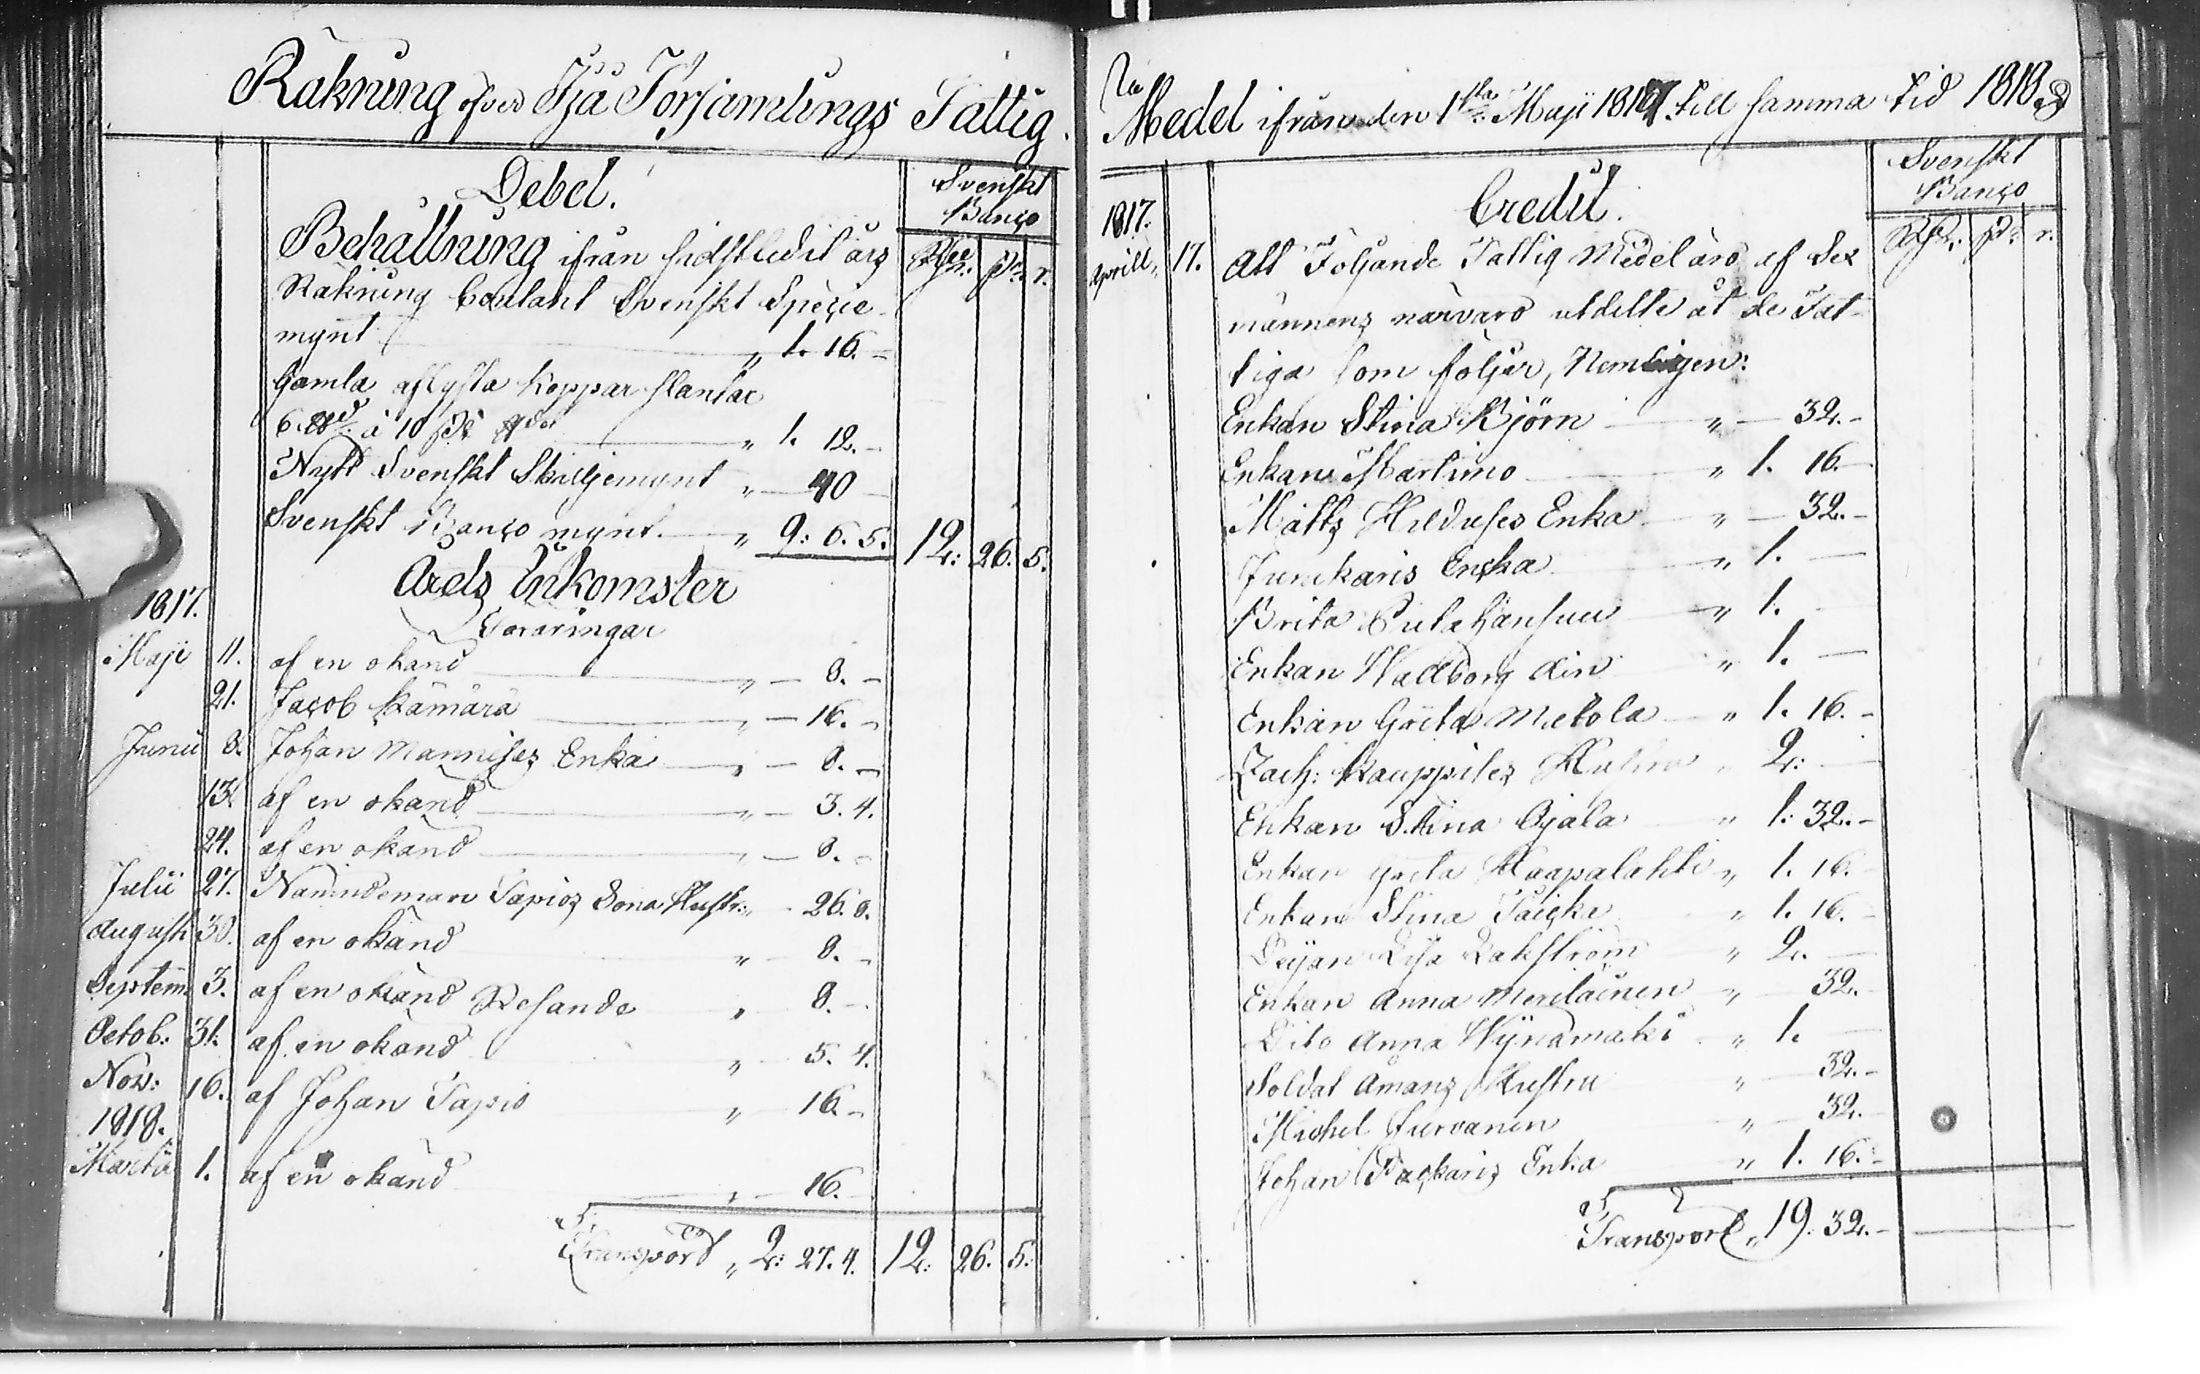 Räkning öfver Ijå Församlings Fattig
Debet.
Svenskt
Banço
Behållning ifrån sidstledit års
Rd. sk. r.
Räkning Contant Svenskt Specie
mynt " 1. 16. -
Gamla aflysta koppar slantar
6 à 10 " 1. 12. -
Nytt Svenskt Skilljemynt " - 40 -
Svenskt Banço mynt. " 9: 6. 5. 12: 26. 5.
Årets Inkomster
1817.
Föräringar
Maji 11. af en okänd " - 8. -
21. Jacob Kämärä " - 16. -
Junii 8. Johan Mannises Enka " - 8. -
13. af en okänd " - 3. 4.
24. af en okänd " - 8. -
Julii 27. Nämndeman Tapios Sona Hustr: " - 26. 8.
August 30. af en okänd " - 8. -
Septem 3. af en okänd Resande " 8. -
Octob: 31. af en okänd " 5. 4.
Nov: 16. af Johan Tapio " 16. -
1818.
Martii 1. af en okänd " - 16. -
Transport " 2: 27. 4. 12: 26. 5.
Medel ifrån den 1sta Maji 1817. till samma tid 1818
Credit.
Svenskt
Banço
1817.
Rd. sk. r.
Aprill 17. Att Följande Fattig Medel äro af Sex
männens närvaro utdelte åt de Fat-
tiga som följer, Nemligen:
Enkan Stina Björn " - 32. -
Enkan Martimo " 1. 16. -
Matts Enka " - 32. -
Junckaris Enka " 1. -
Brita " 1. -
Enkan Wallborg " 1. -
Enkan Greta Metola " 1. 16. -
Zach: Kauppiles " 2: -
Enkan Stina Ojala " 1: 32. -
Enkan Greta Haapalahti " 1. 16. -
Enkan Stina " 1. 16. -
Lisa " 2. -
Enkan Anna Meriläinen " 32. -
Dito Anna " 1. -
Soldat Åmans Hustru " 32. -
Michel Turvanen " 32. -
Johan Enka " 1. 16. -
Transport " 19: 32. -